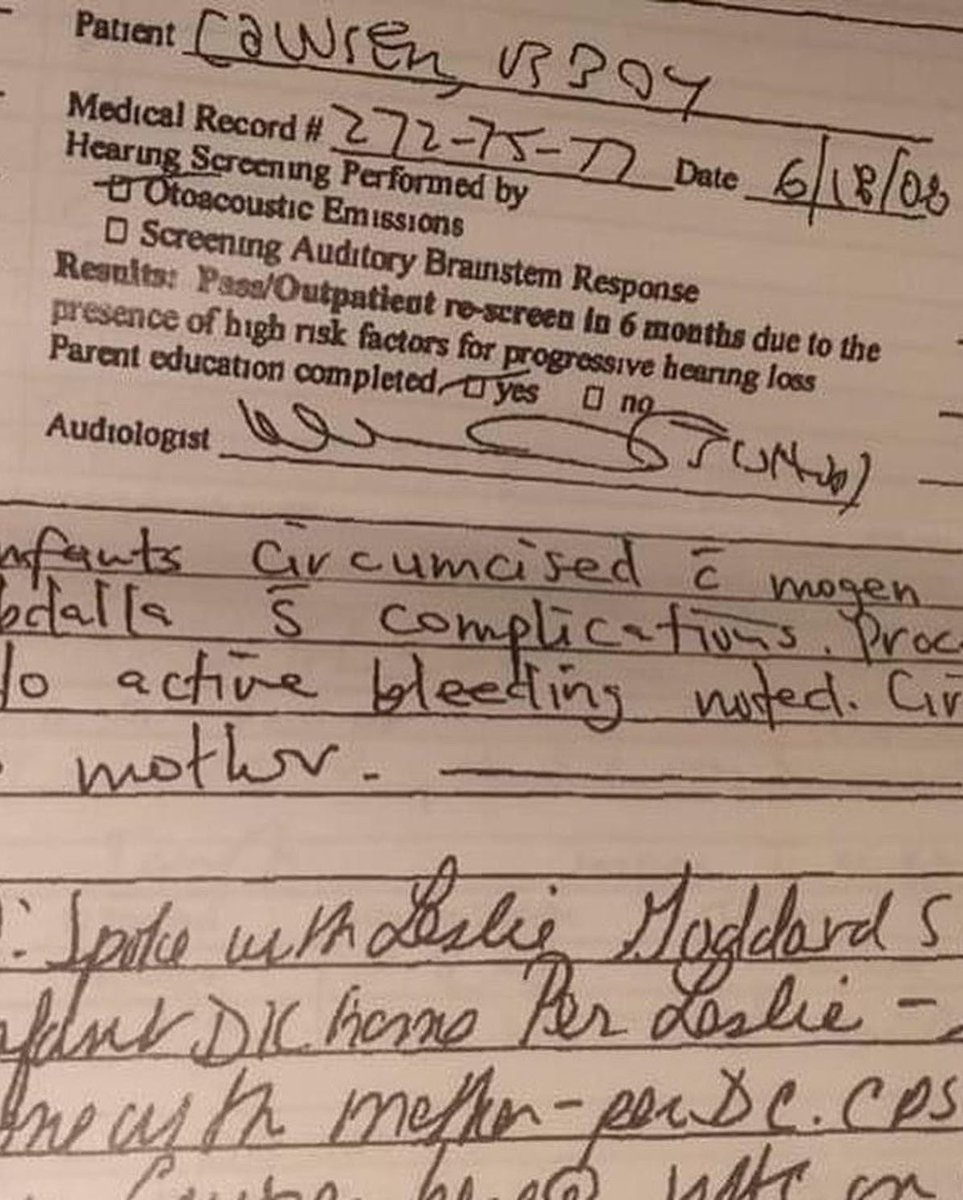 Patient Lawsen, B BOY
Medical Record # 272-75-77 Date 6/18/08
Hearing Screening Performed by
☐ Otoacoustic Emissions
☐ Screening Auditory Brainstem Response
Results: Pass/Outpatient re-screen in 6 months due to the
presence of high risk factors for progressive hearing loss
Parent education completed ☐ yes ☐ no
Audiologist
nfants circumcised c̄ mogen
bdalla s̄ complications. Proc
No active bleeding noted. Cir
mother.
: Spoke with Leslie Goddard S
infant DC home Per Leslie -
me with mother - per DC. CPS